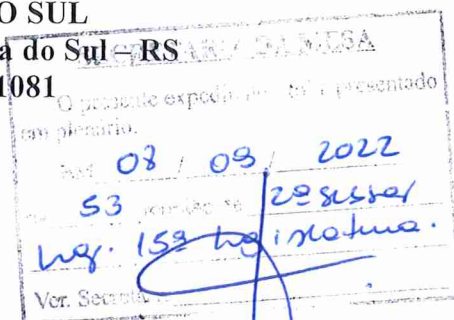 O SUL
a do Sul – RS
1081
SECRETARIA DA MESA
O presente expediente foi apresentado
em plenário.
Em 08 / 09 / 2022
na 53 reunião da 2ª sessão
Leg. 15ª Legislatura.
Ver. Secretário